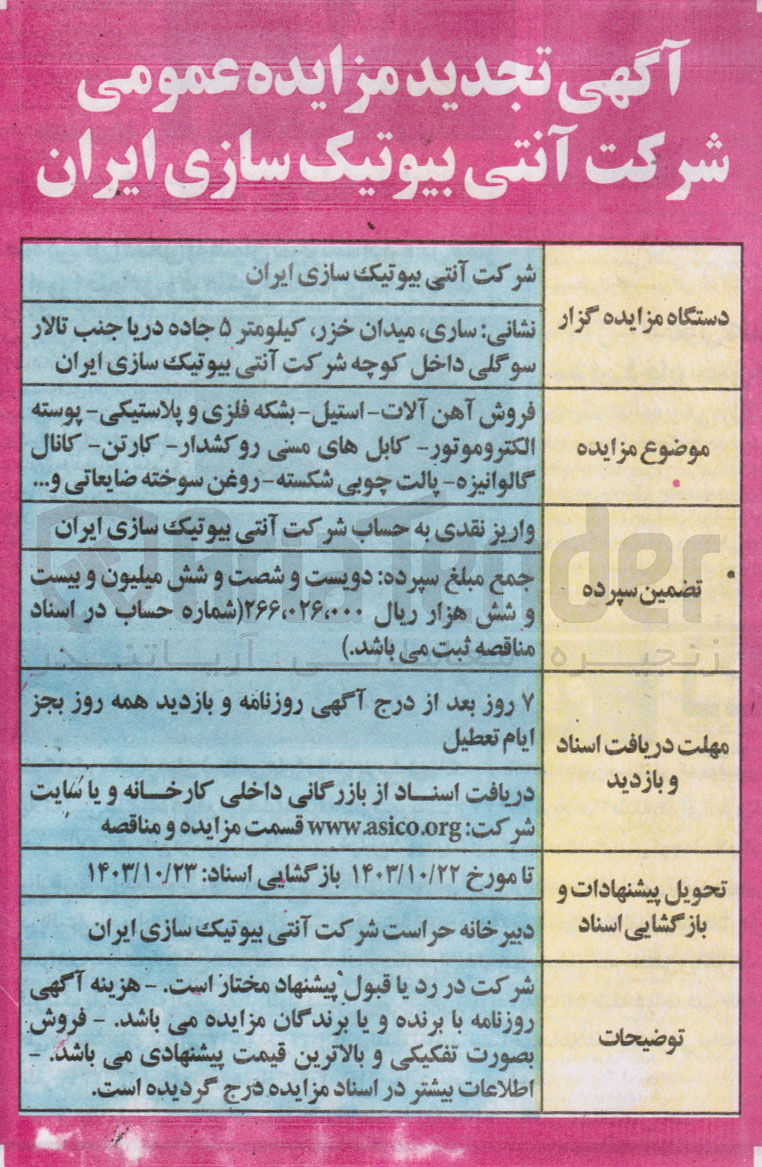 آگهی تجدید مزایده عمومی
شرکت آنتی بیوتیک سازی ایران
دستگاه مزایده گزار
شرکت آنتی بیوتیک سازی ایران
نشانی: ساری، میدان خزر، کیلومتر ۵ جاده دریا جنب تالار
سوگلی داخل کوچه شرکت آنتی بیوتیک سازی ایران
موضوع مزایده
فروش آهن آلات- استیل- بشکه فلزی و پلاستیکی- پوسته
الکتروموتور- کابل های مسی روکشدار- کارتن- کانال
گالوانیزه- پالت چوبی شکسته- روغن سوخته ضایعاتی و...
تضمین سپرده
واریز نقدی به حساب شرکت آنتی بیوتیک سازی ایران
جمع مبلغ سپرده: دویست و شصت و شش میلیون و بیست
و شش هزار ریال ۲۶۶،۰۲۶،۰۰۰(شماره حساب در اسناد
مناقصه ثبت می باشد.)
مهلت دریافت اسناد
و بازدید
۷ روز بعد از درج آگهی روزنامه و بازدید همه روز بجز
ایام تعطیل
دریافت اسناد از بازرگانی داخلی کارخانه و یا سایت
شرکت: www.asico.org قسمت مزایده و مناقصه
تحویل پیشنهادات و
بازگشایی اسناد
تا مورخ ۱۴۰۳/۱۰/۲۲ بازگشایی اسناد: ۱۴۰۳/۱۰/۲۳
دبیرخانه حراست شرکت آنتی بیوتیک سازی ایران
توضیحات
شرکت در رد یا قبول پیشنهاد مختار است. - هزینه آگهی
روزنامه با برنده و یا برندگان مزایده می باشد. - فروش
بصورت تفکیکی و بالاترین قیمت پیشنهادی می باشد. -
اطلاعات بیشتر در اسناد مزایده درج گردیده است.
AriaTender